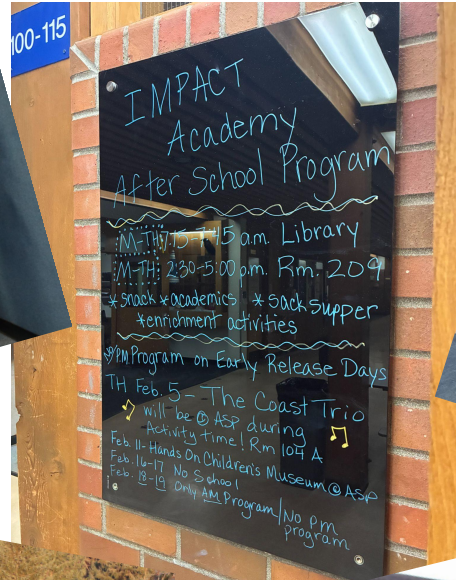 100-115
IMPACT
Academy
After School Program
M-TH 7:15-7:45 a.m. Library
M-TH: 2:30-5:00 p.m. Rm. 209
*snack *academics *sack supper
*enrichment activities
PM Program on Early Release Days
TH Feb. 5 - The Coast Trio
will be @ ASP during
Activity time! Rm 104 A
Feb. 11- Hands On Children's Museum @ ASP
Feb. 16-17 No School
Feb. 18-19 Only AM Program/No pm
program